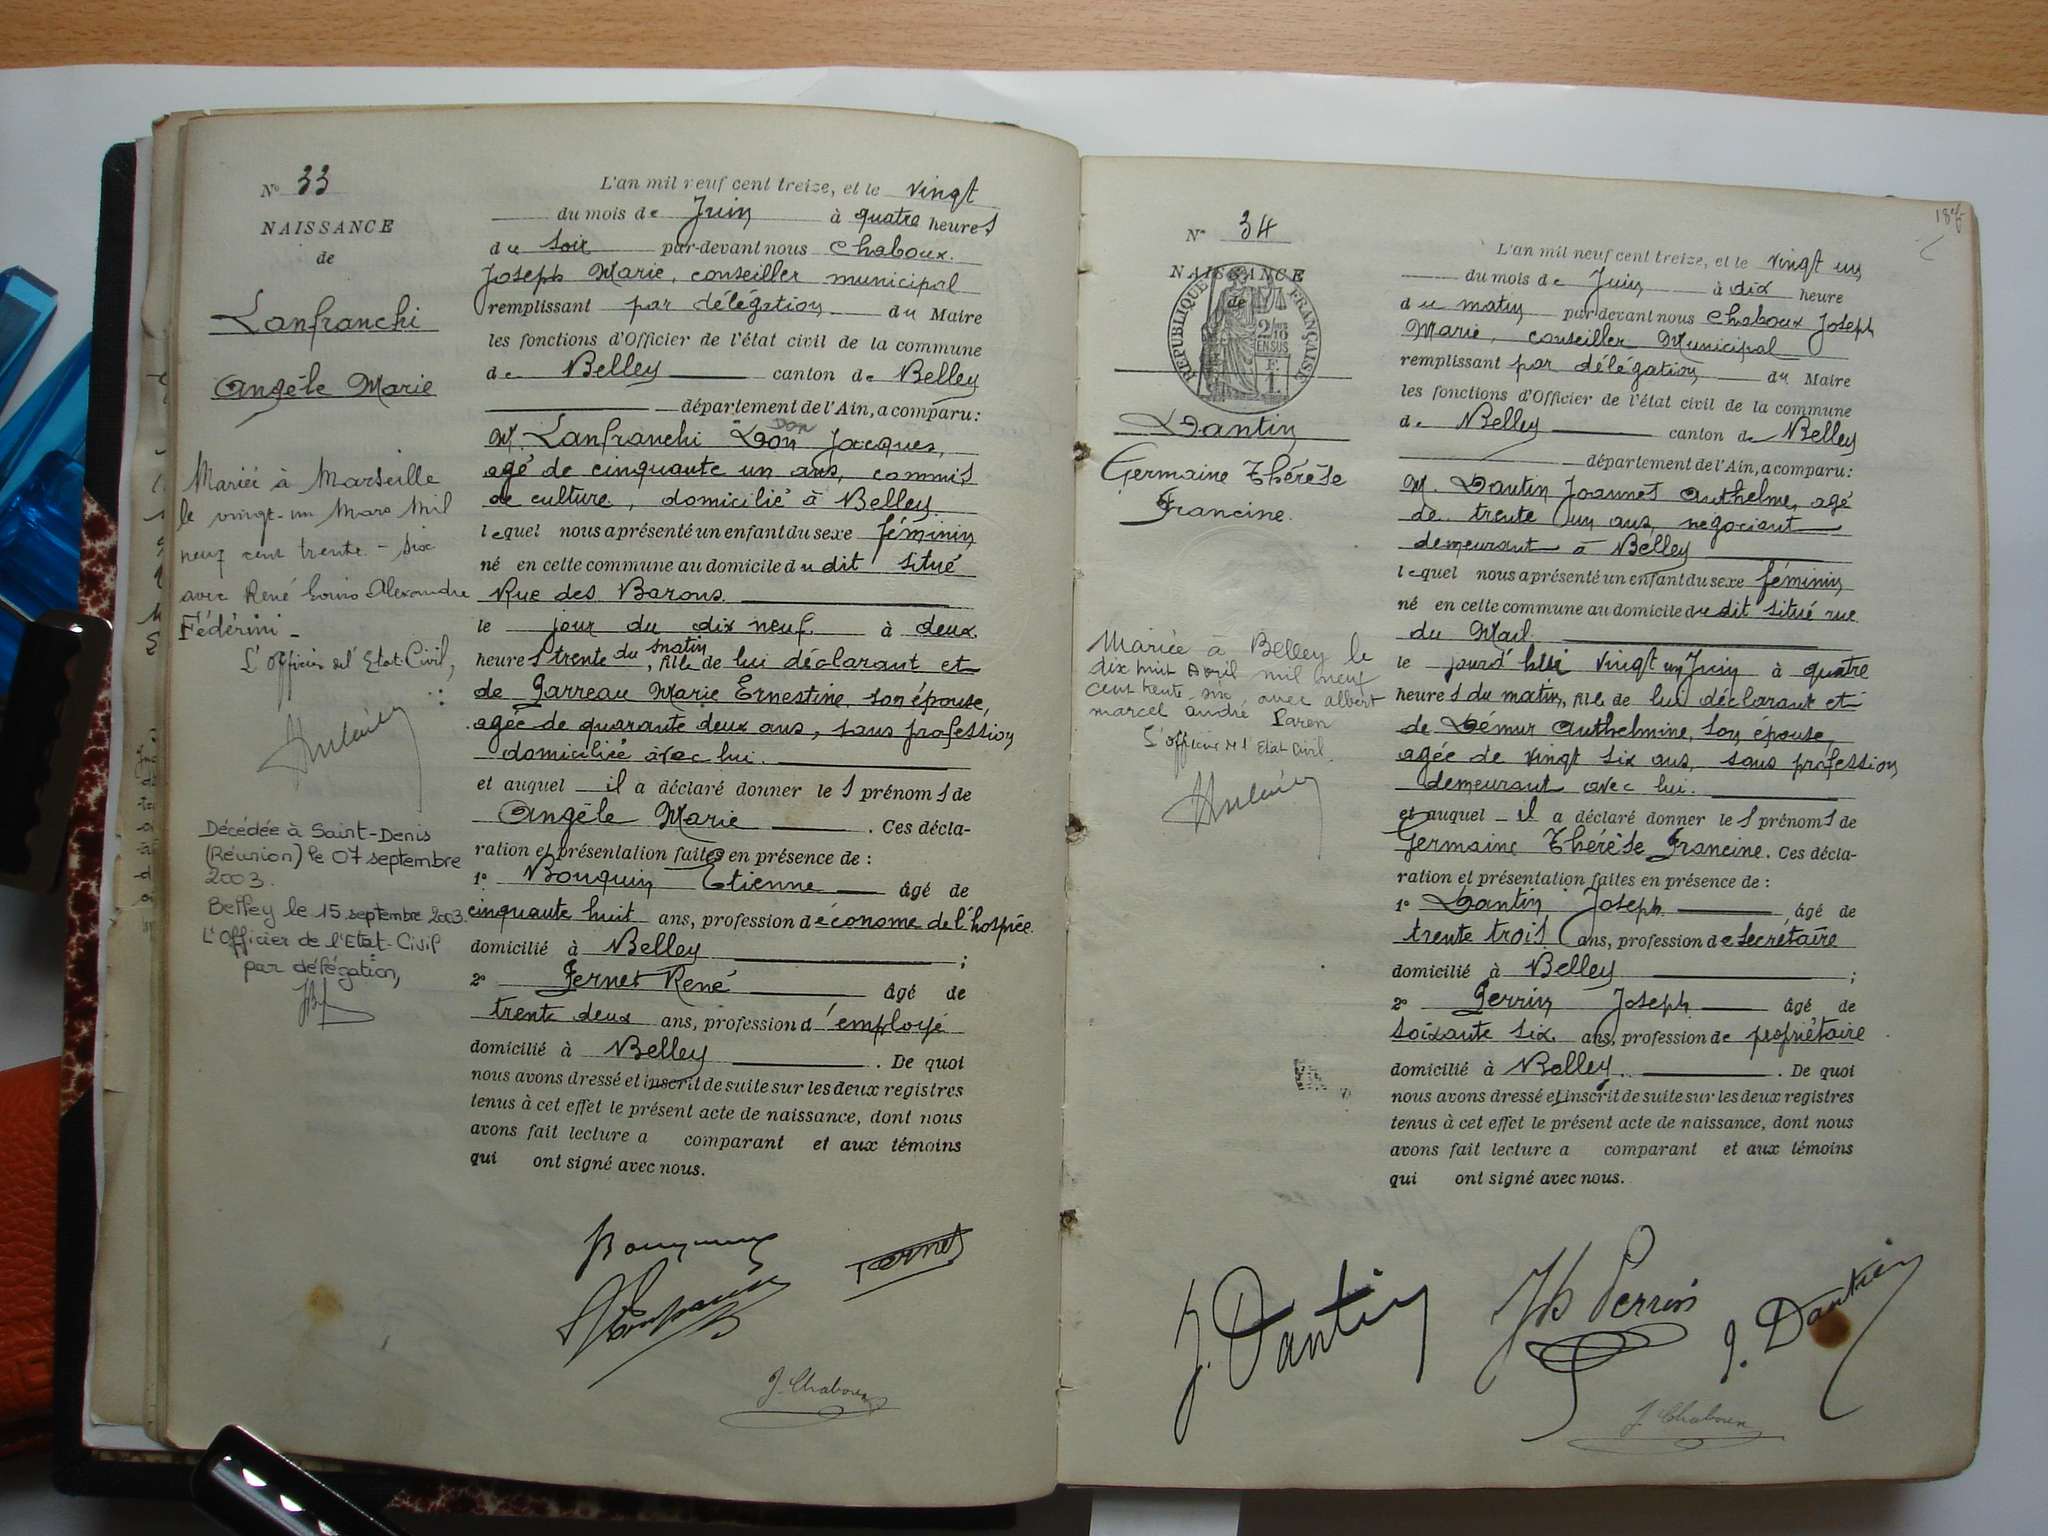 N° 33
NAISSANCE
de
Lanfranchi
Angèle Marie
Mariée à Marseille
le vingt-un Mars mil
neuf cent trente-six
avec René Louis Alexandre
Fédérini
L'officier de l'Etat-Civil,
Décédée à Saint-Denis
(Réunion) le 07 septembre
2003.
Belley le 15 septembre 2003.
L'Officier de l'Etat-Civil
par délégation,
L'an mil neuf cent treize, et le vingt
du mois de Juin à quatre heures
du soir par-devant nous Chaboux
Joseph Marie, conseiller municipal
remplissant par délégation du Maire
les fonctions d'Officier de l'état civil de la commune
de Belley canton de Belley
département de l'Ain, a comparu:
Don
M. Lanfranchi Don Jacques,
agé de cinquante un ans, commis
de culture, domicilié à Belley
lequel nous a présenté un enfant du sexe féminin
né en cette commune au domicile du dit situé
Rue des Barons
le jour du dix neuf à deux
heures trente du matin, fille de lui déclarant et
de Garreau Marie Ernestine, son épouse,
agée de quarante deux ans, sans profession
domiciliée avec lui.
et auquel il a déclaré donner les prénoms de
Angèle Marie. Ces décla-
ration et présentation faites en présence de:
1° Bouquin Etienne âgé de
cinquante huit ans, profession d'économe de l'hospice
domicilié à Belley;
2° Fernet René âgé de
trente deux ans, profession d'employé
domicilié à Belley. De quoi
nous avons dressé et inscrit de suite sur les deux registres
tenus à cet effet le présent acte de naissance, dont nous
avons fait lecture a comparant et aux témoins
qui ont signé avec nous.
Bouquin
Fernet
J. Chaboux
N° 34
NAISSANCE
de
RÉPUBLIQUE FRANÇAISE
Dantin
Germaine Thérèse
Francine.
Mariée à Belley le
dix huit Avril mil neuf
cent trente-six avec albert
marcel andré Laren
L'officier de l'Etat Civil.
L'an mil neuf cent treize, et le vingt un
du mois de Juin à dix heure
du matin par-devant nous Chaboux Joseph
Marie, conseiller Municipal
remplissant par délégation du Maire
les fonctions d'Officier de l'état civil de la commune
de Belley canton de Belley
département de l'Ain, a comparu:
M. Dantin Joannes Anthelme, agé
de trente un ans, négociant
demeurant à Belley
lequel nous a présenté un enfant du sexe féminin
né en cette commune au domicile du dit situé rue
du Mail.
le jourd'hui vingt un Juin à quatre
heures du matin, fille de lui déclarant et
de Démur Anthelmine, son épouse,
agée de vingt six ans, sans profession
demeurant avec lui.
et auquel il a déclaré donner les prénoms de
Germaine Thérèse Francine. Ces décla-
ration et présentation faites en présence de:
1° Dantin Joseph âgé de
trente trois ans, profession de secrétaire
domicilié à Belley;
2° Perrin Joseph âgé de
soixante six ans, profession de propriétaire
domicilié à Belley. De quoi
nous avons dressé et inscrit de suite sur les deux registres
tenus à cet effet le présent acte de naissance, dont nous
avons fait lecture a comparant et aux témoins
qui ont signé avec nous.
J. Dantin
Jh Perrin
J. Dantin
J. Chaboux